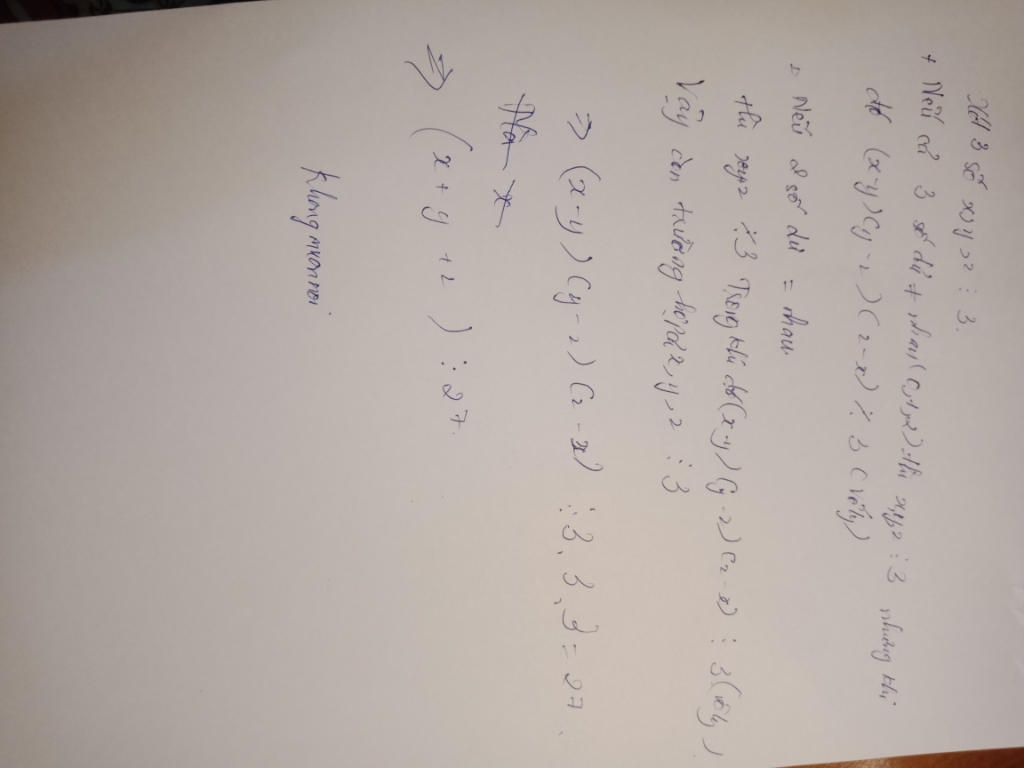 Xét 3 số x, y, z ⋮ 3.
+ Nếu cả 3 số dư ≠ nhau (0,1,2) thì xyz ⋮ 3 nhưng khi
đó (x-y)(y-z)(z-x) ⋮̸ 3 (vô lý)
+ Nếu 2 số dư = nhau
thì xyz ⋮̸ 3 Trong khi đó (x-y)(y-z)(z-x) ⋮ 3 (vô lý)
Vậy còn trường hợp x, y, z ⋮ 3
=> (x-y)(y-z)(z-x) ⋮ 3.3.3 = 27.
=> (x + y + z) ⋮ 27.
Khongmkonoi